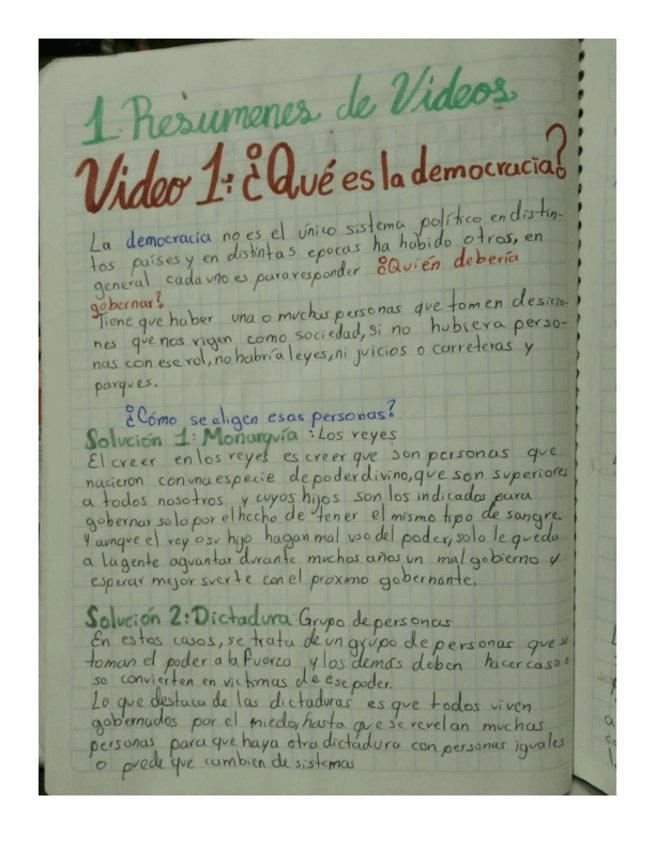 1. Resumenes de Videos
Video 1: ¿Qué es la democracia?
La democracia no es el único sistema político en distin-
tos países y en distintas epocas ha habido otros, en
general cada uno es para responder ¿Quién debería
gobernar?
Tiene que haber una o muchas personas que tomen desicio-
nes que nos rigen como sociedad, si no hubiera perso-
nas con ese rol, no habría leyes, ni juicios o carreteras y
parques.
¿Cómo se eligen esas personas?
Solución 1: Monarquía : Los reyes
El creer en los reyes es creer que son personas que
nacieron con una especie de poder divino, que son superiores
a todos nosotros y cuyos hijos son los indicados para
gobernar solo por el hecho de tener el mismo tipo de sangre.
Y aunque el rey o su hijo hagan mal uso del poder, solo le queda
a la gente aguantar durante muchos años un mal gobierno y
esperar mejor suerte con el proximo gobernante.
Solución 2: Dictadura: Grupo de personas
En estos casos, se trata de un grupo de personas que se
toman el poder a la fuerza y los demás deben hacer caso o
se convierten en victimas de ese poder.
Lo que destaca de las dictaduras es que todos viven
gobernados por el miedo, hasta que se revelan muchas
personas para que haya otra dictadura con personas iguales
o puede que cambien de sistemas